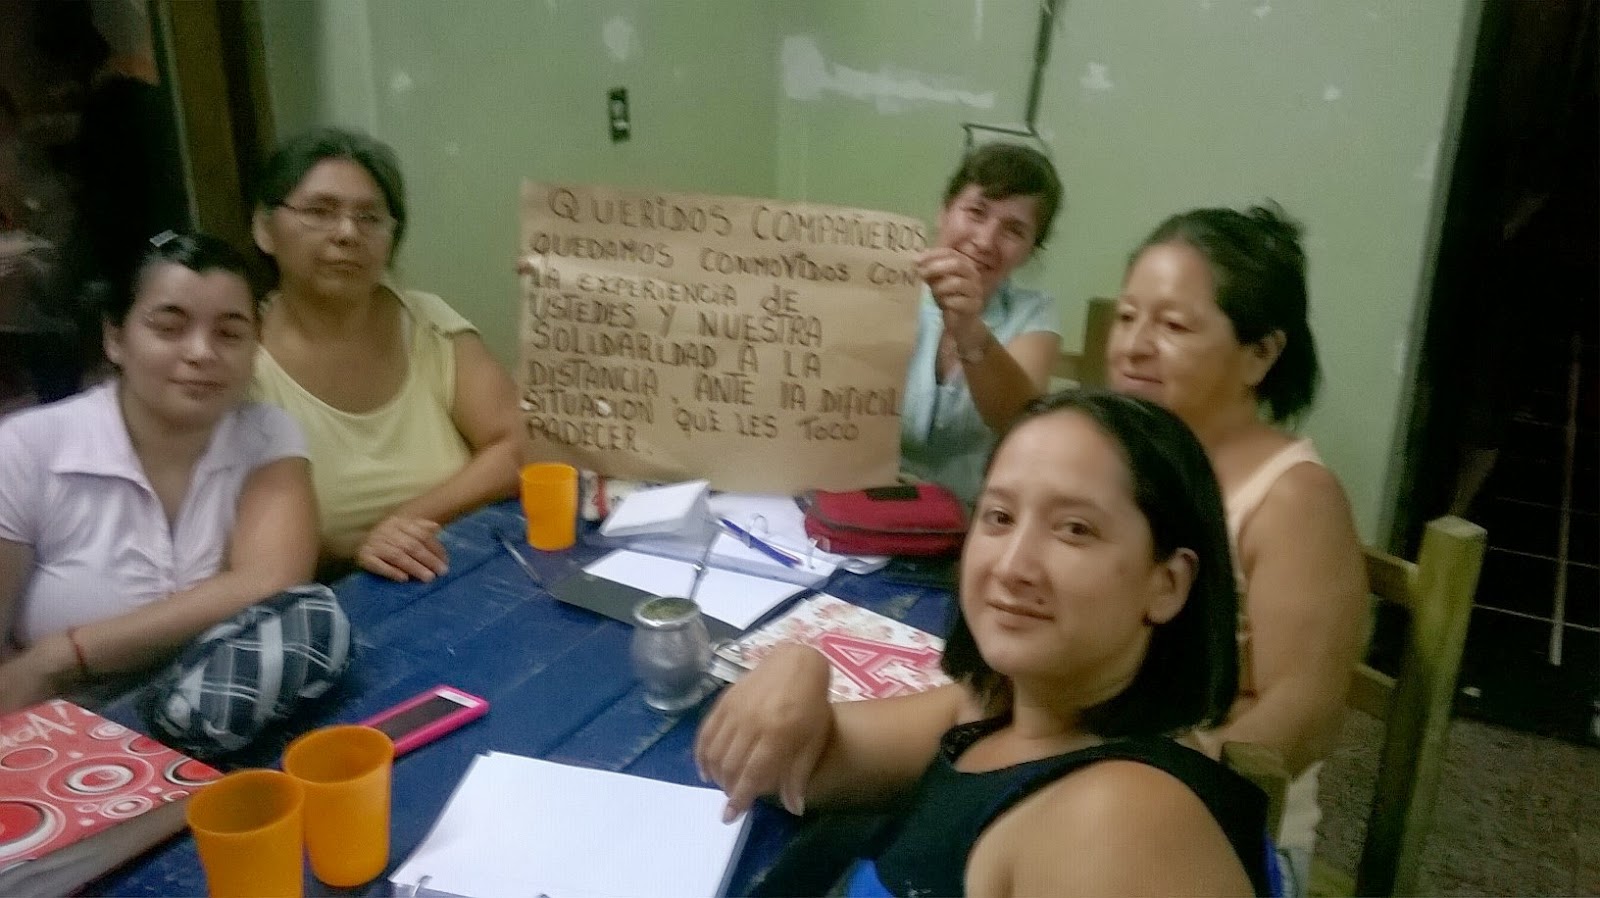 QUERIDOS COMPAÑEROS
QUEDAMOS CONMOVIDOS CON
LA EXPERIENCIA dE
USTEDES Y NUESTRA
SOLIDARIDAD A LA
DISTANCIA, ANTE LA DIFICIL
SITUACION QUE LES TOCO
PADECER.
A